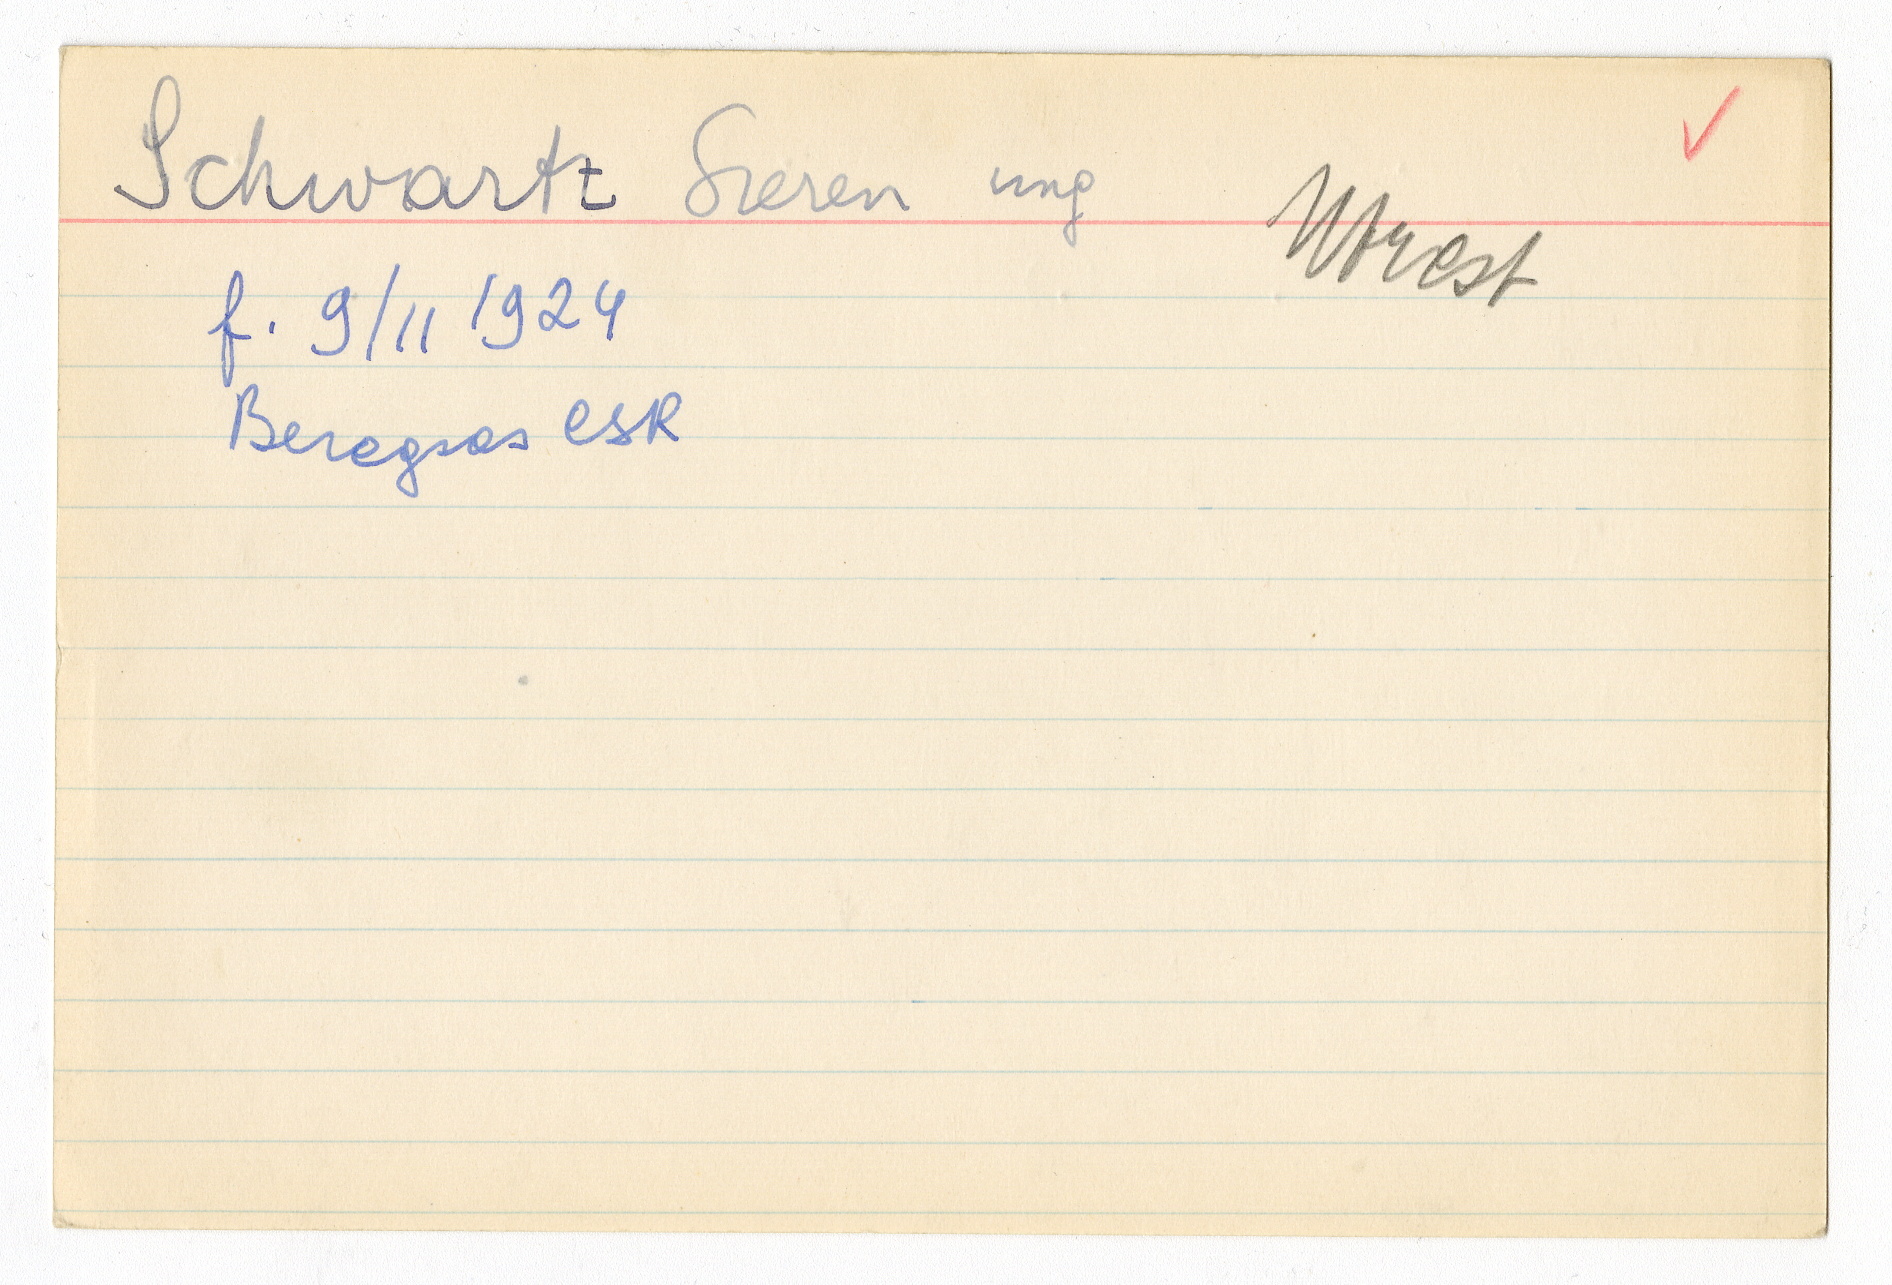 Schwartz Szeren ung Utrest
f. 9/11 1924
Beregsas CSR